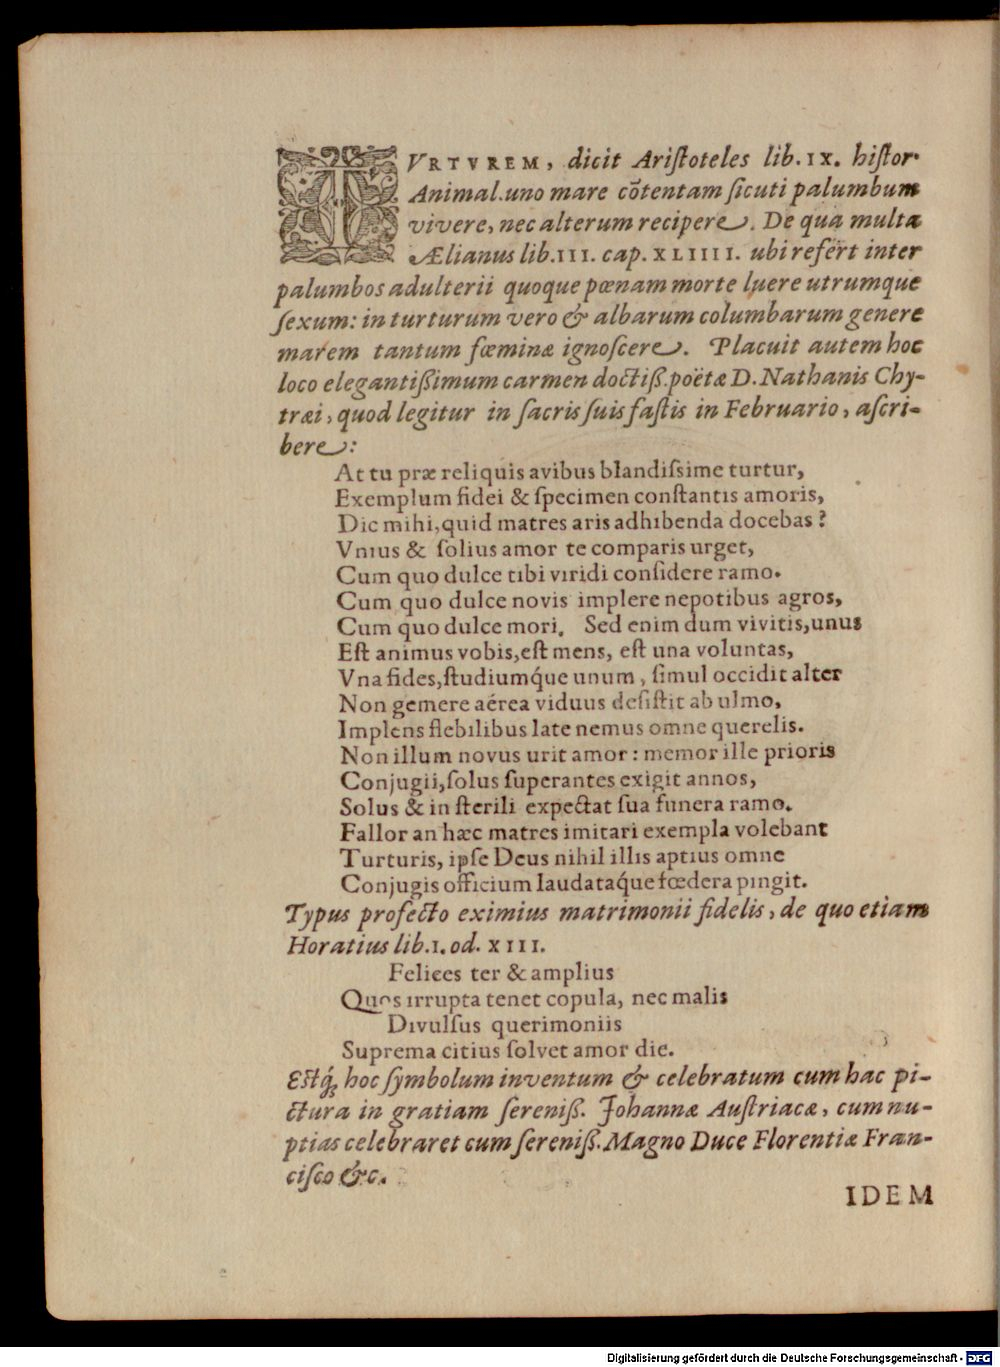 TVRTVREM, dicit Ariſtoteles lib. IX. hiſtor.
Animal. uno mare cõtentam ſicuti palumbum
vivere, nec alterum recipere. De qua multa
Ælianus lib. III. cap. XLIIII. ubi refert inter
palumbos adulterii quoque pœnam morte luere utrumque
ſexum: in turturum vero & albarum columbarum genere
marem tantum fœminæ ignoſcere. Placuit autem hoc
loco elegantißimum carmen doctiß. poëtæ D. Nathanis Chy-
træi, quod legitur in ſacris ſuis faſtis in Februario, aſcri-
bere:
At tu præ reliquis avibus blandiſsime turtur,
Exemplum fidei & ſpecimen conſtantis amoris,
Dic mihi, quid matres aris adhibenda docebas?
Vnius & ſolius amor te comparis urget,
Cum quo dulce tibi viridi conſidere ramo.
Cum quo dulce novis implere nepotibus agros,
Cum quo dulce mori. Sed enim dum vivitis, unus
Eſt animus vobis, eſt mens, eſt una voluntas,
Vna fides, ſtudiumq́ue unum, ſimul occidit alter
Non gemere aérea viduus deſiſtit ab ulmo,
Implens flebilibus late nemus omne querelis.
Non illum novus urit amor: memor ille prioris
Conjugii, ſolus ſuperantes exigit annos,
Solus & in ſterili expectat ſua funera ramo.
Fallor an hæc matres imitari exempla volebant
Turturis, ipſe Deus nihil illis aptius omne
Conjugis officium laudataq́ue fœdera pingit.
Typus profecto eximius matrimonii fidelis, de quo etiam
Horatius lib. I. od. XIII.
Felices ter & amplius
Quos irrupta tenet copula, nec malis
Divulſus querimoniis
Suprema citius ſolvet amor die.
Eſtq́; hoc ſymbolum inventum & celebratum cum hac pi-
ctura in gratiam ſereniß. Johannæ Auſtriacæ, cum nu-
ptias celebraret cum ſereniß. Magno Duce Florentiæ Fran-
ciſco &c.
IDEM
Digitalisierung gefördert durch die Deutsche Forschungsgemeinschaft - DFG